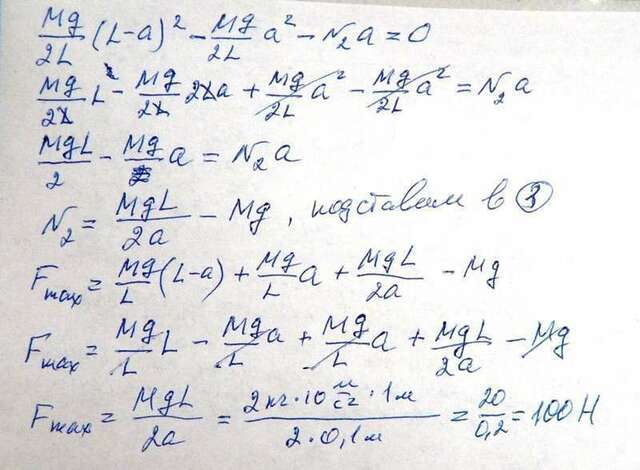 Mg/2L (L-a)² - Mg/2L a² - N₂a = 0
Mg/2L L² - Mg/2L 2La + Mg/2L a² - Mg/2L a² = N₂a
MgL/2 - Mg a = N₂a
N₂ = MgL/2a - Mg, подставим в ③
Fmax = Mg/L (L-a) + Mg/L a + MgL/2a - Mg
Fmax = Mg/L L - Mg/L a + Mg/L a + MgL/2a - Mg
Fmax = MgL/2a = 2кг·10 м/с2·1м / 2·0,1м = 20/0,2 = 100Н